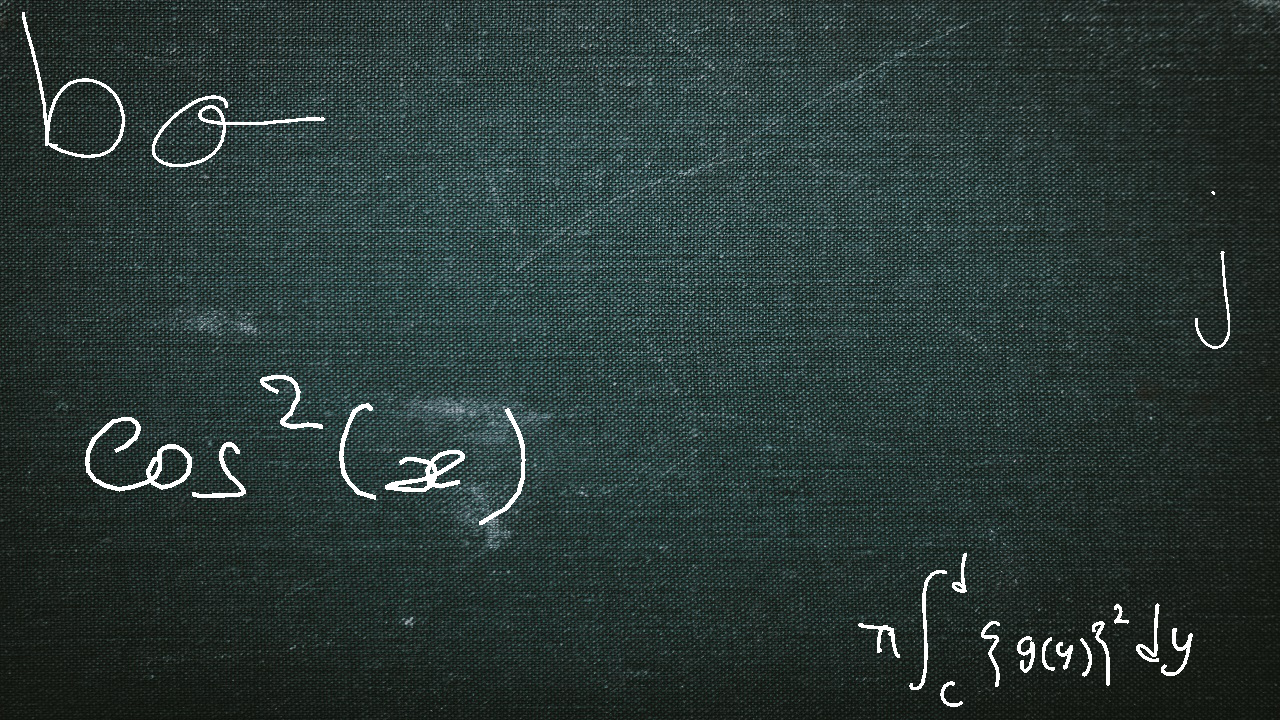 bo
j
cos²(x)
π∫_c^d {g(y)}² dy